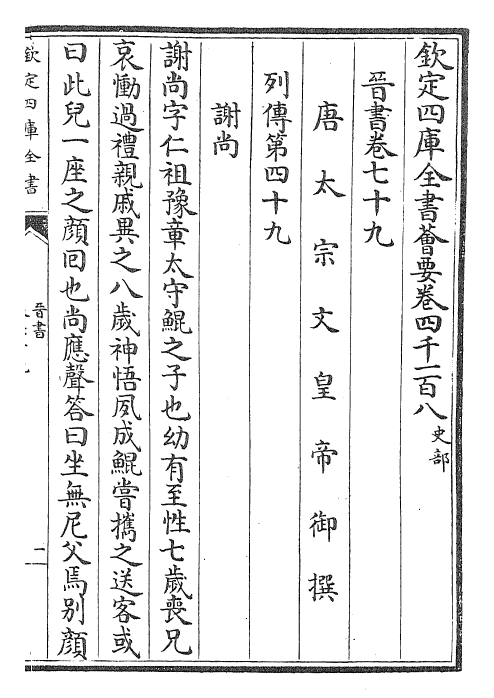 欽定四庫全書薈要卷四千一百八史部
晉書卷七十九
唐太宗文皇帝御撰
列傳第四十九
謝尚
謝尚字仁祖豫章太守鯤之子也幼有至性七歲喪兄
哀慟過禮親戚異之八歲神悟夙成鯤嘗攜之送客或
曰此兒一座之顏回也尚應聲答曰坐無尼父焉別顏
欽定四庫全書
晉書